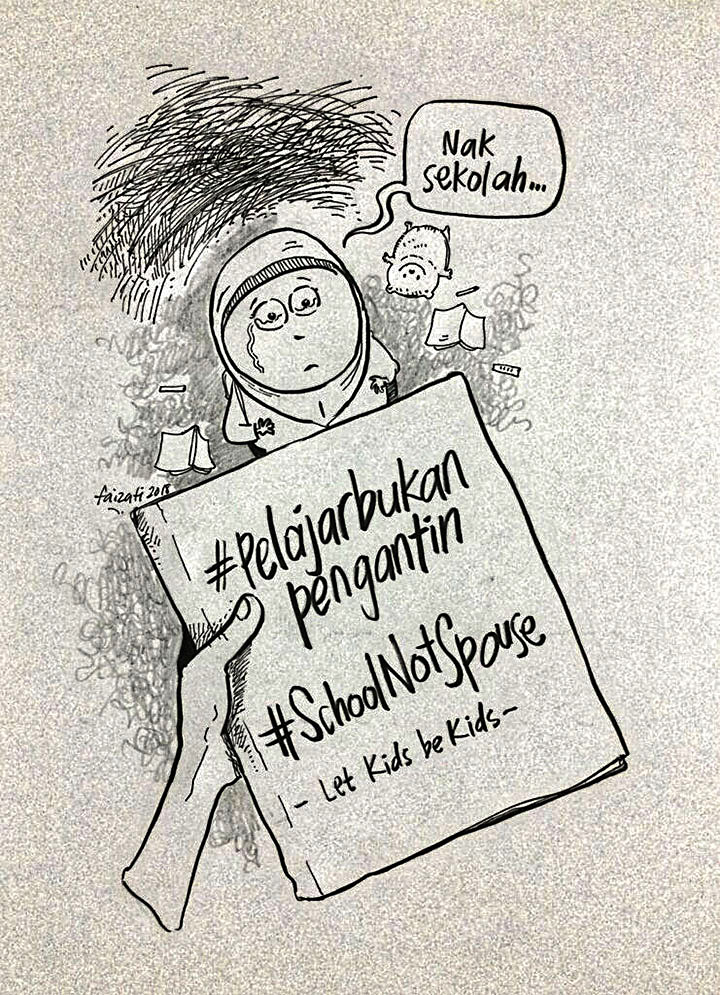 Nak
sekolah...
faizati 2018
#Pelajarbukan
pengantin
#SchoolNotSpouse
- Let Kids be Kids -